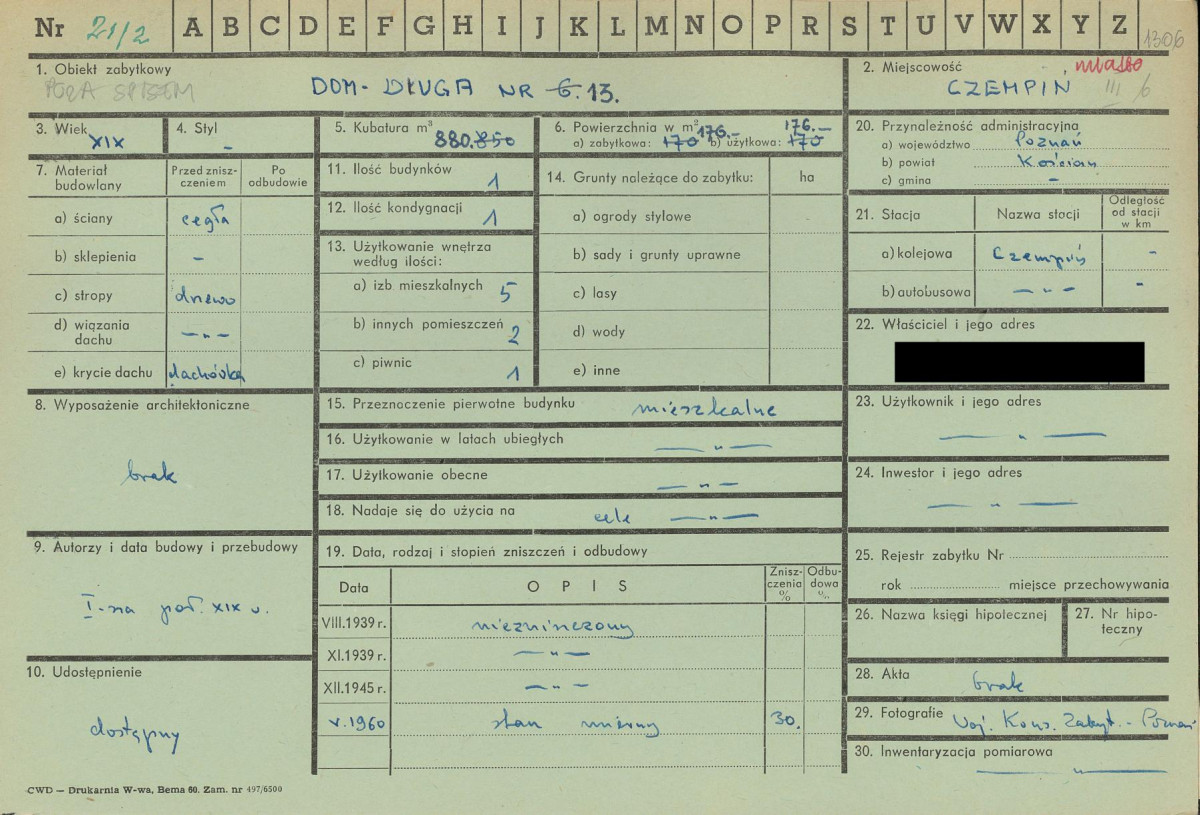 Nr 21/2 A B C D E F G H I J K L M N O P R S T U V W X Y Z 1306
1. Obiekt zabytkowy
POZA SPISEM
DOM - DŁUGA NR 6. 13.
2. Miejscowość
miasto
CZEMPIŃ
III/6
3. Wiek
XIX
4. Styl
-
5. Kubatura m³
880. 850
6. Powierzchnia w m²
a) zabytkowa: 170 176.- b) użytkowa: 170 176.-
7. Materiał budowlany
Przed znisz-
czeniem
Po
odbudowie
a) ściany cegła
b) sklepienia -
c) stropy drzewo
d) wiązania
dachu -"-
e) krycie dachu dachówka
8. Wyposażenie architektoniczne
brak
9. Autorzy i data budowy i przebudowy
I-sza poł. XIX w.
10. Udostępnienie
dostępny
11. Ilość budynków 1
12. Ilość kondygnacji 1
13. Użytkowanie wnętrza
według ilości:
a) izb mieszkalnych 5
b) innych pomieszczeń 2
c) piwnic 1
14. Grunty należące do zabytku: ha
a) ogrody stylowe
b) sady i grunty uprawne
c) lasy
d) wody
e) inne
15. Przeznaczenie pierwotne budynku mieszkalne
16. Użytkowanie w latach ubiegłych -"-
17. Użytkowanie obecne -"-
18. Nadaje się do użycia na cele -"-
19. Data, rodzaj i stopień zniszczeń i odbudowy
Data
OPIS
Znisz-
czenia
%
Odbu-
dowa
%
VIII.1939 r. niezniszczony
XI.1939 r. -"-
XII.1945 r. -"-
V.1960 stan 30.
20. Przynależność administracyjna
a) województwo Poznań
b) powiat Kościan
c) gmina -
21. Stacja
Nazwa stacji
Odległość
od stacji
w km
a) kolejowa Czempiń -
b) autobusowa -"- -
22. Właściciel i jego adres
23. Użytkownik i jego adres
-"-
24. Inwestor i jego adres
-"-
25. Rejestr zabytku Nr
rok miejsce przechowywania
26. Nazwa księgi hipotecznej
27. Nr hipo-
teczny
28. Akta
brak
29. Fotografie Woj. Kons. Zabyt. - Poznań
30. Inwentaryzacja pomiarowa
-"-
CWD — Drukarnia W-wa, Bema 60. Zam. nr 497/6500